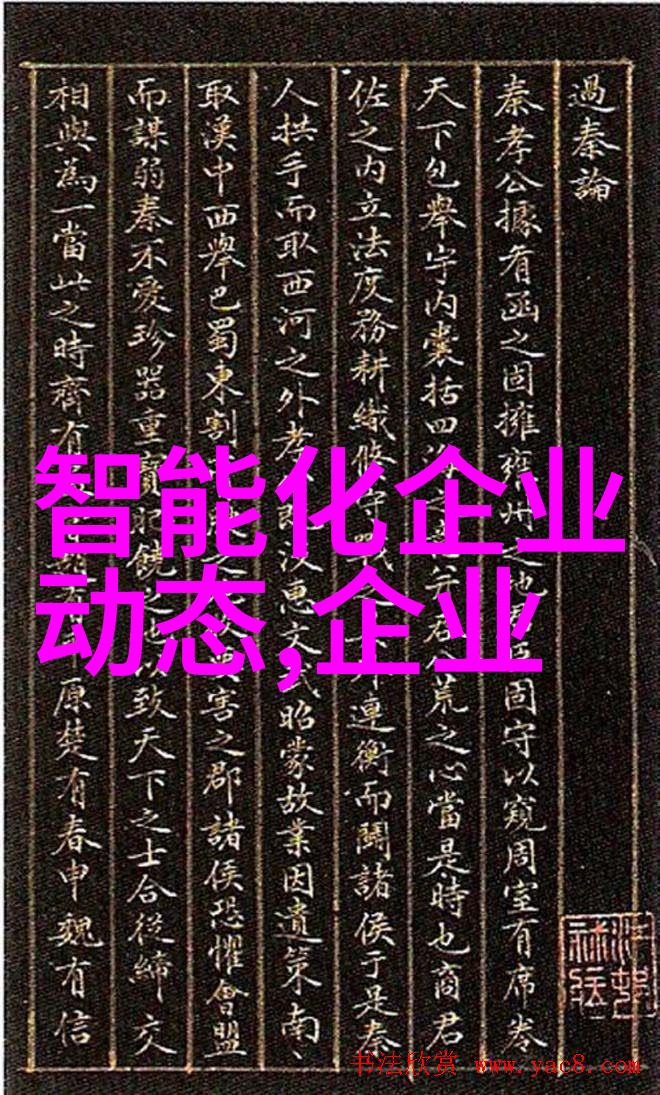 過秦論
秦孝公據有函之固擁雍州之地君臣固守以窺周室有席卷
天下包舉宇内囊括四海之意并吞八荒之心當是時也商君
佐之内立法度務耕織修守戰之具外連衡而鬪諸侯于是秦
人拱手而取西河之外孝公既没惠文武昭蒙故業因遺策南
取漢中西舉巴蜀東割害之郡諸侯恐懼會盟
而謀弱秦不愛珍器重寶肥饒之地以致天下之士合從締交
相與為一當此之時齊有原楚有春申魏有信
智能化企业
动态,企业
书法欣赏 www.yac8.com